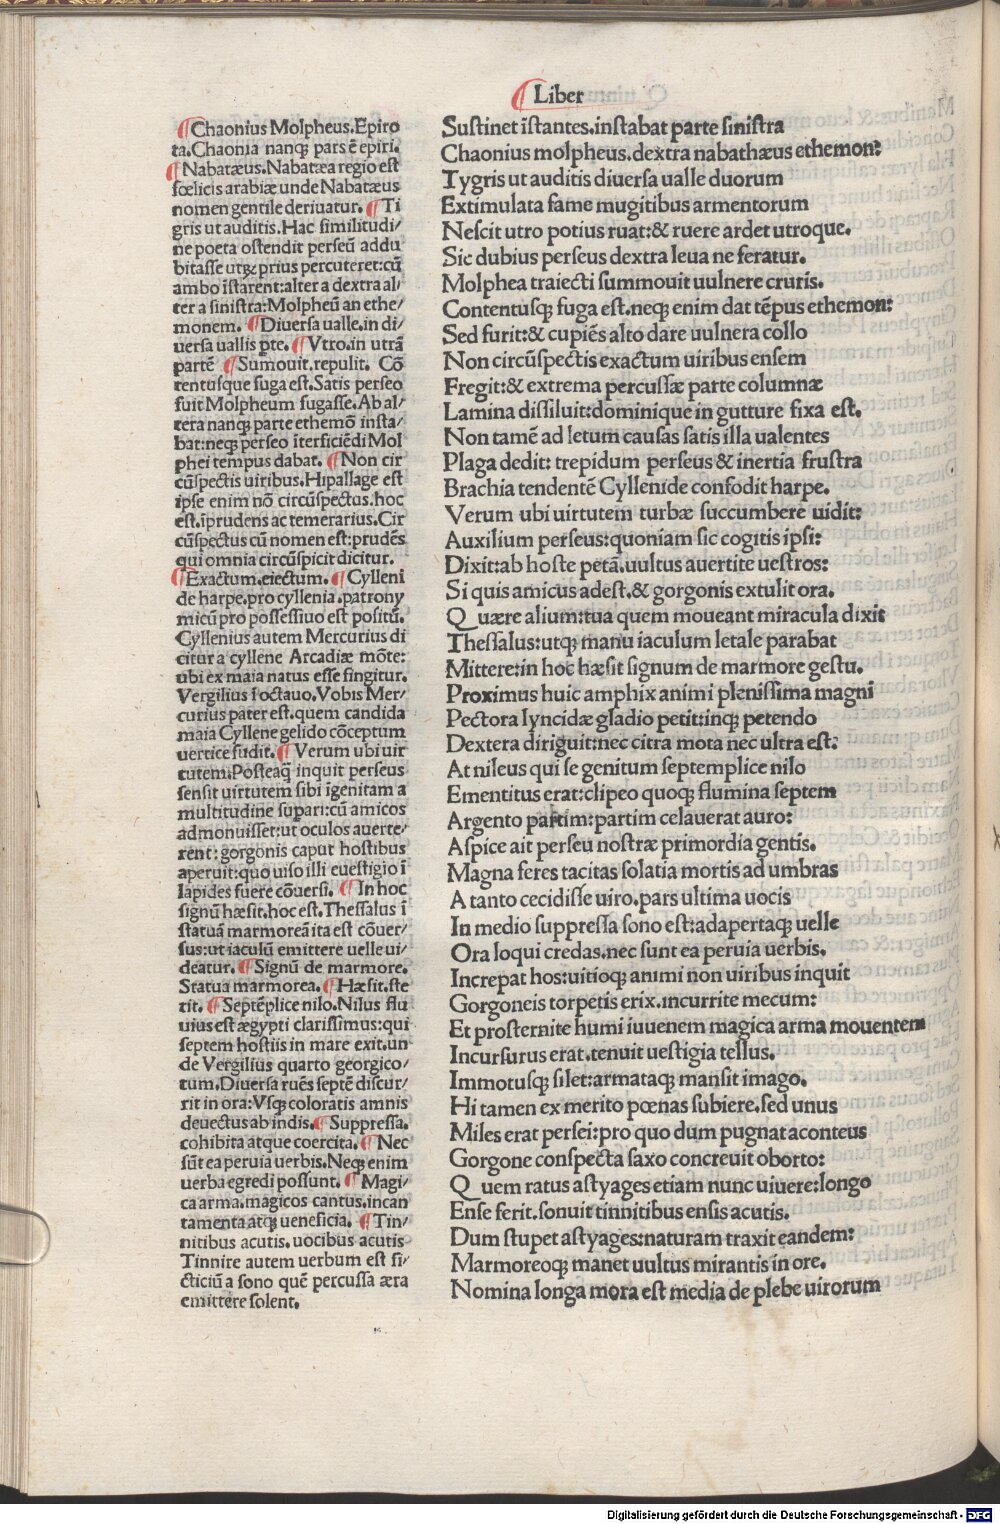 ¶ Liber
¶Chaonius Molpheus.Epiro
ta.Chaonia nanqꝫ pars ē epiri.
¶Nabatæus.Nabatæa regio est
fœlicis arabiæ unde Nabatæus
nomen gentile deriuatur. ¶Ti
gris ut auditis.Hac similitudi/
ne poeta ostendit perseū addu
bitasse utꝝ prius percuteret:cū
ambo īstarent:alter a dextra al/
ter a sinistra:Molpheū an ethe/
monem. ¶Diuersa ualle.in di/
uersa uallis pte. ¶Vtro.in utrā
partē ¶Sumouit.repulit. Cō
tentusque fuga est.Satis perseo
fuit Molpheum fugasse.Ab al/
tera nanqꝫ parte ethemō insta/
bat:neqꝫ perseo īterficiēdi Mol
phei tempus dabat. ¶Non cir
cūspectis uiribus.Hipallage est
ipse enim nō circūspectus.hoc
est.īprudens ac temerarius.Cir
cūspectus cū nomen est:prudēs
qui omnia circūspicit dicitur.
¶Exactum.eiectum. ¶Cylleni
de harpe.pro cyllenia.patrony
micū pro possessiuo est positū.
Cyllenius autem Mercurius di
citur a cyllene Arcadiæ mōte:
ubi ex maia natus esse fingitur.
Vergilius ī octauo.Vobis Mer/
curius pater est.quem candida
maia Cyllene gelido cōceptum
uertice fudit. ¶Verum ubi uir
tutem.Posteaqꝫ inquit perseus
sensit uirtutem sibi īgenitam a
multitudine supari:cū amicos
admonuisset:ut oculos auerte/
rent:gorgonis caput hostibus
aperuit:quo uiso illi euestigio ī
lapides fuere cōuersi. ¶In hoc
signū hæsit.hoc est.Thessalus ī
statuā marmoreā ita est cōuer/
sus:ut iaculū emittere uelle ui/
deatur. ¶Signū de marmore.
Statua marmorea. ¶Hæsit.ste
tit. ¶Septēplice nilo.Nilus flu
uius est ægypti clarissimus:qui
septem hostiis in mare exit.un
de Vergilius quarto georgico/
rum.Diuersa ruēs septē discur/
rit in ora:Vsqꝫ coloratis amnis
deuectus ab indis. ¶Suppressa.
cohibita atque coercita. ¶Nec
sūt ea peruia uerbis.Neqꝫ enim
uerba egredi possunt. ¶Magi/
ca arma.magicos cantus.incan
tamenta atqꝫ ueneficia. ¶Tin/
nitibus acutis.uocibus acutis
Tinnire autem uerbum est fi/
cticiū a sono quē percussa æra
emittere solent.
Sustinet īstantes.instabat parte sinistra
Chaonius molpheus.dextra nabathæus ethemon:
Tygris ut auditis diuersa ualle duorum
Extimulata fame mugitibus armentorum
Nescit utro potius ruat:& ruere ardet utroque.
Sic dubius perseus dextra leua ne feratur.
Molphea traiecti summouit uulnere cruris.
Contentusqꝫ fuga est.neqꝫ enim dat tēpus ethemon:
Sed furit:& cupiēs alto dare uulnera collo
Non circūspectis exactum uiribus ensem
Fregit:& extrema percussæ parte columnæ
Lamina dissiluit:dominique in gutture fixa est.
Non tamē ad letum causas satis illa ualentes
Plaga dedit: trepidum perseus & inertia frustra
Brachia tendentē Cyllenide confodit harpe.
Verum ubi uirtutem turbæ succumbere uidit:
Auxilium perseus:quoniam sic cogitis ipsi:
Dixit:ab hoste petā.uultus auertite uestros:
Si quis amicus adest.& gorgonis extulit ora.
Quære alium:tua quem moueant miracula dixit
Thessalus:utqꝫ manu iaculum letale parabat
Mittere:in hoc hæsit signum de marmore gestu.
Proximus huic amphix animi plenissima magni
Pectora lyncidæ gladio petit:inqꝫ petendo
Dextera diriguit:nec citra mota nec ultra est:
At nileus qui se genitum septemplice nilo
Ementitus erat:clipeo quoqꝫ flumina septem
Argento partim:partim celauerat auro:
Aspice ait perseu nostræ primordia gentis.
Magna feres tacitas solatia mortis ad umbras
A tanto cecidisse uiro.pars ultima uocis
In medio suppressa sono est:adapertaqꝫ uelle
Ora loqui credas.nec sunt ea peruia uerbis.
Increpat hos:uitioqꝫ animi non uiribus inquit
Gorgoneis torpetis erix.incurrite mecum:
Et prosternite humi iuuenem magica arma mouentem
Incursurus erat.tenuit uestigia tellus.
Immotusqꝫ silet:armataqꝫ mansit imago.
Hi tamen ex merito pœnas subiere.sed unus
Miles erat persei:pro quo dum pugnat aconteus
Gorgone conspecta saxo concreuit oborto:
Quem ratus astyages etiam nunc uiuere:longo
Ense ferit.sonuit tinnitibus ensis acutis.
Dum stupet astyages:naturam traxit eandem:
Marmoreoqꝫ manet uultus mirantis in ore.
Nomina longa mora est media de plebe uirorum
Digitalisierung gefördert durch die Deutsche Forschungsgemeinschaft - DFG